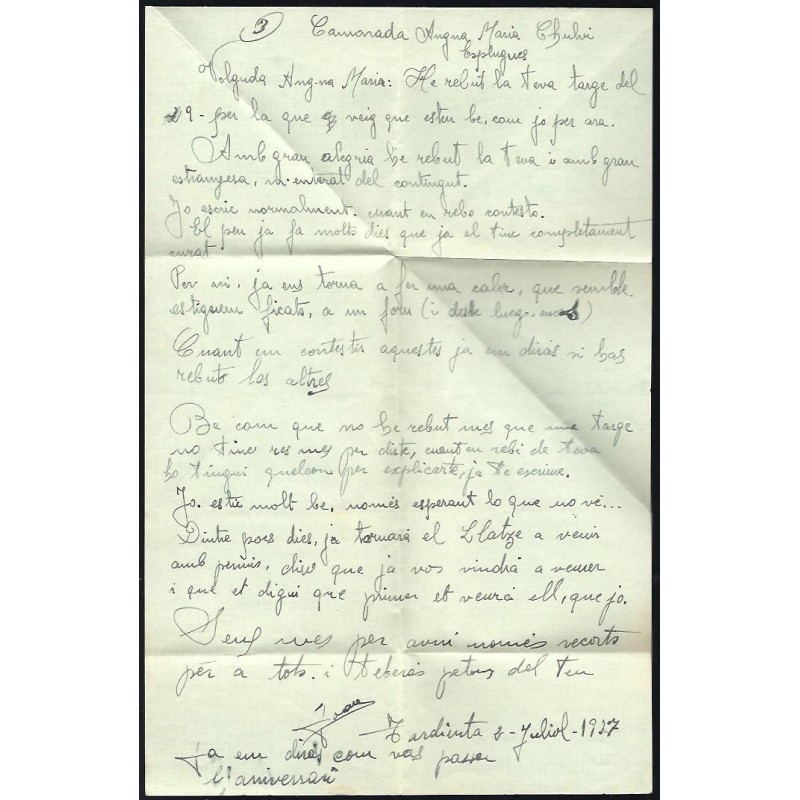 3 Camarada Angna Maria Chulvi
Esplugues
Volguda Ang-na Maria: He rebut la teva targe del
29 - per la que veig que esteu be, com jo per ara.
Amb gran alegria he rebut la teva i amb gran
estranyesa, m'enterat del contingut.
Jo escric normalment. cuant en rebo contesto.
El peu ja fa molts dies que ja el tinc completament
curat
Per aci, ja ens torna a fer una calor, que semble
estiguem ficats, a un forn (i desde luego)
Cuant em contestis aquestes ja em dirás si has
rebuts los altres
Be com que no he rebut mes que una targe
no tinc res mes per diste, cuant en rebi de teva
ho tingui quelcom per explicarte, ja te escriure.
Jo. estic molt be, només esperant lo que no ve...
Dintre pocs dies, ja tornará el Llatze a venir
amb permis, diu que ja vos vindrá a veurer
i que et digui que primer et veurá ell, que jo.
Sens mes per avui només recorts
per a tots. i teberás petons del teu
Juan
Tardienta 2-Juliol-1937
Ja em dirás com vas passar
l'aniversari